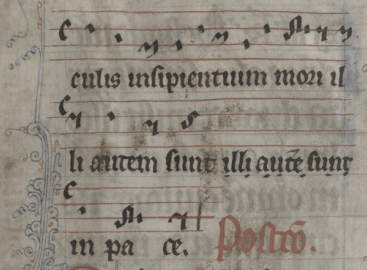 culis insipientium mori il
li autem sunt illi autē sunt
in pa ce. Postcō.